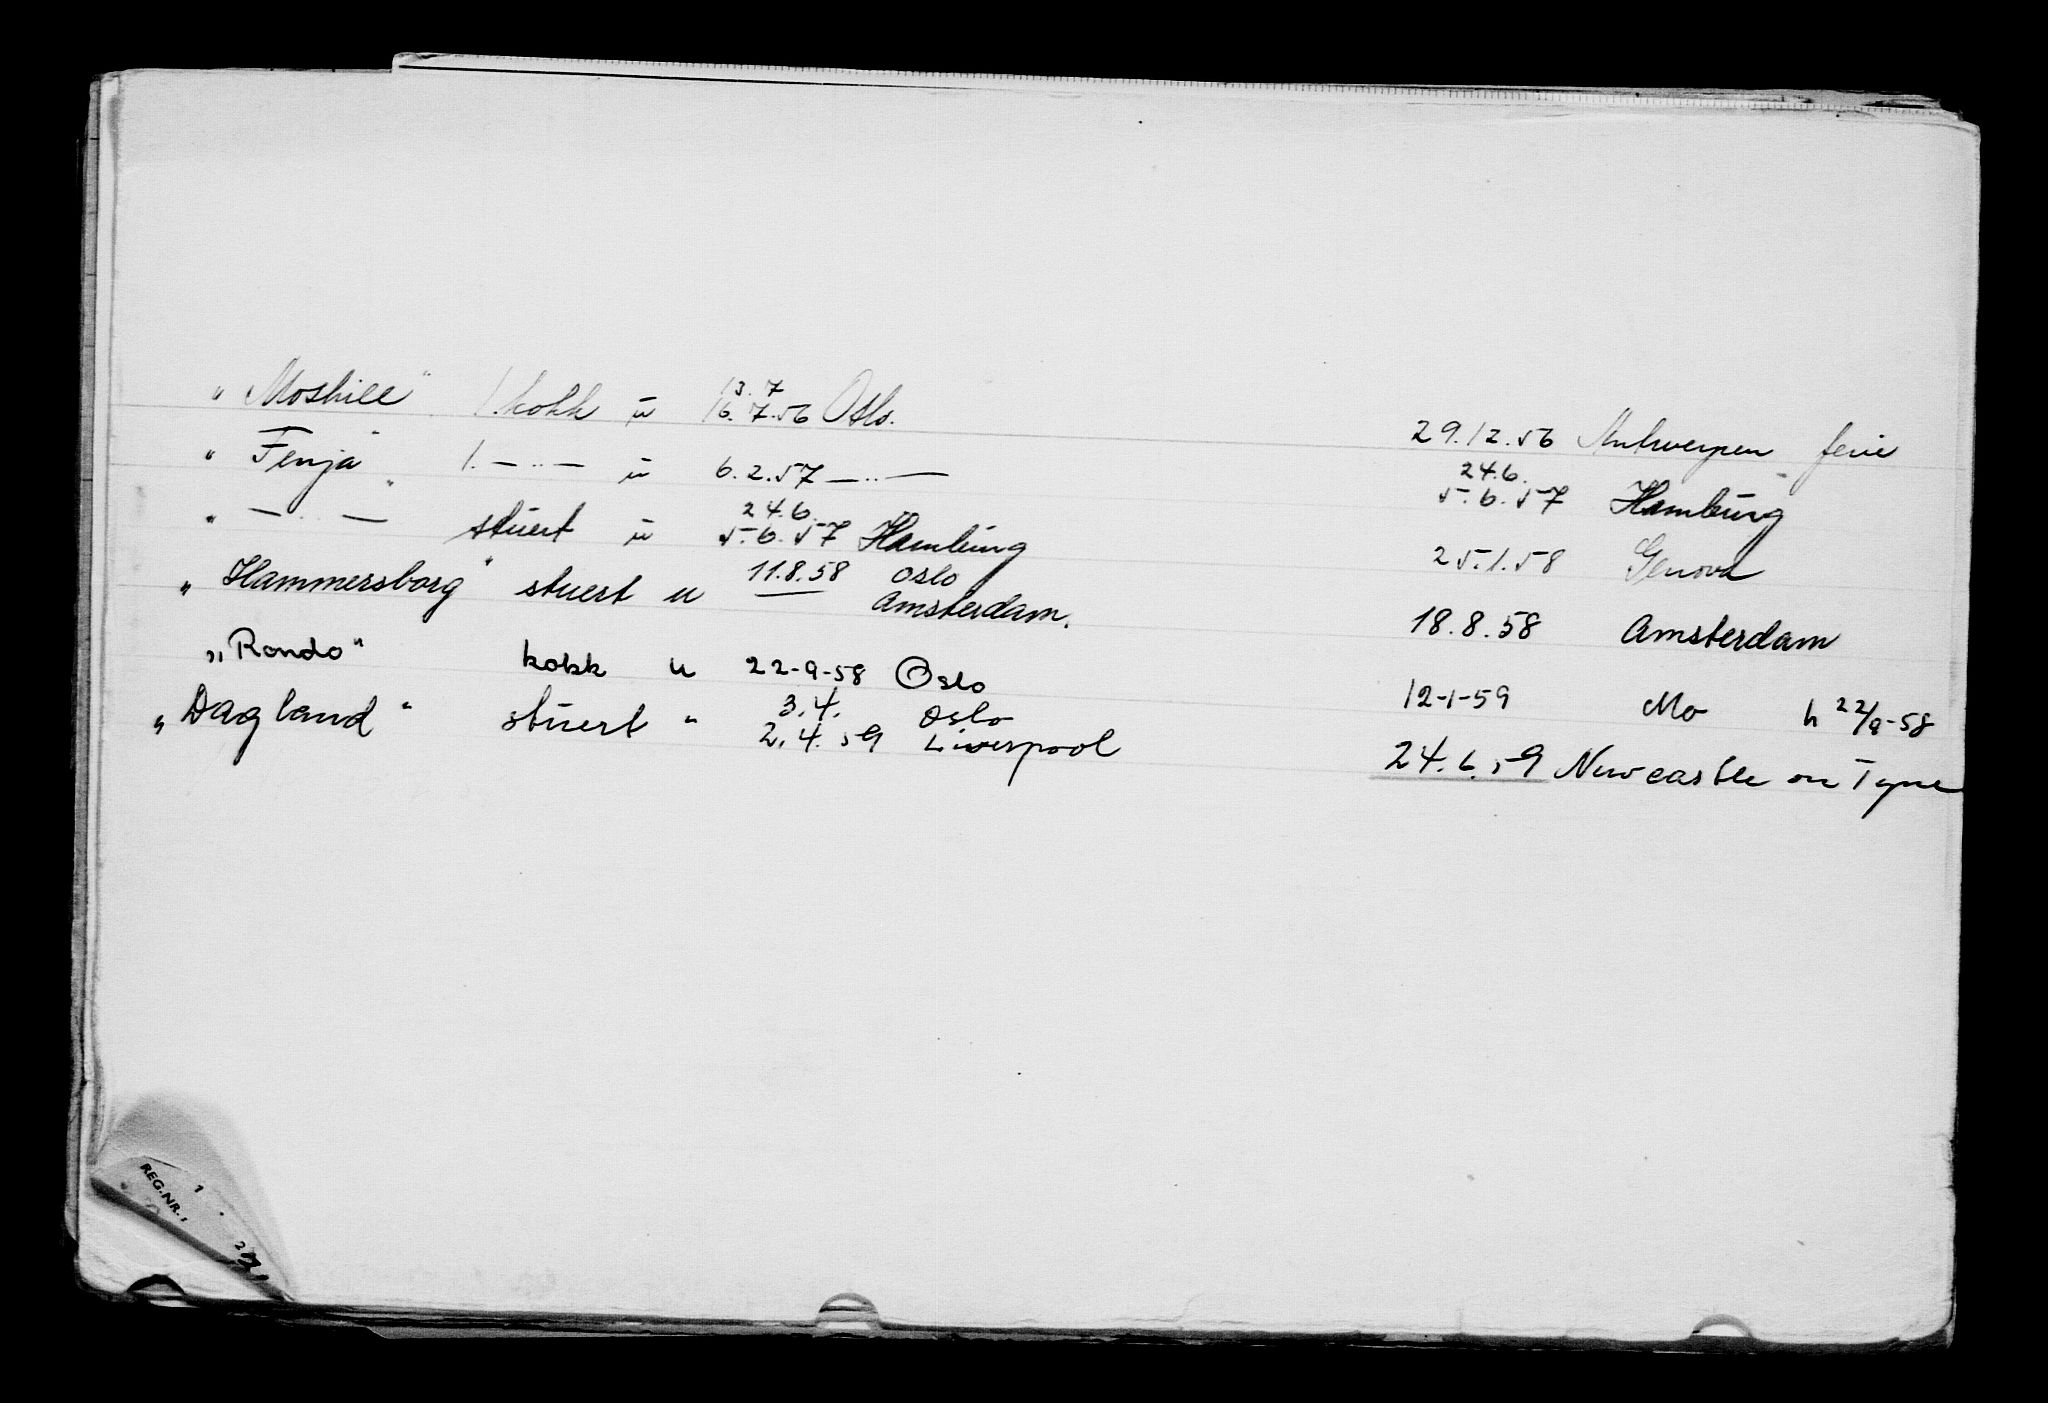 „ Moshill “ 1. kokk u 13.7 16.7.56 Oslo. 29.12.56 Antwerpen ferie
„ Fenja “ 1. —"— u 6.2.57 —"— 24.6. 5.6.57 Hamburg
„ —"— “ stuert u 24.6. 5.6.57 Hamburg 25.1.58 Genova
„ Hammersborg “ stuert u 11.8.58 Oslo Amsterdam. 18.8.58 Amsterdam
„Rondo“ kokk u 22-9-58 Oslo 12-1-59 Mo h 22/9-58
„ Dagland “ stuert " 3.4. Oslo 2.4.59 Liverpool 24.6.59 Newcastle on Tyne
REG.NR.